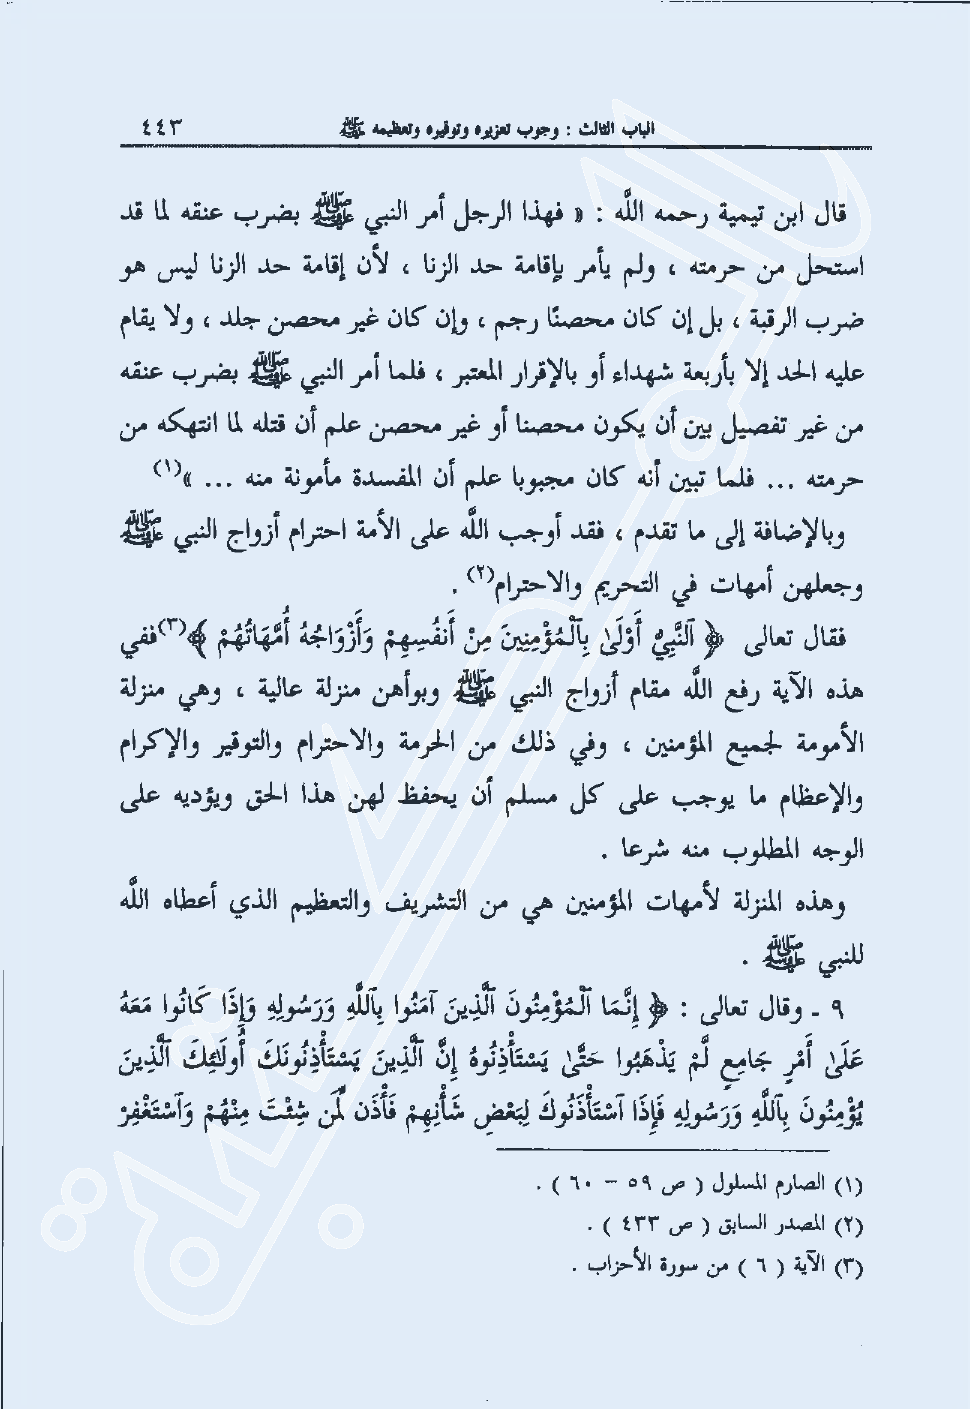 الباب الثالث : وجوب تعزيره وتوقيره وتعظيمه ﷺ ٤٤٣
قال ابن تيمية رحمه اللَّه : « فهذا الرجل أمر النبي ﷺ بضرب عنقه لما قد
استحل من حرمته ، ولم يأمر بإقامة حد الزنا ، لأن إقامة حد الزنا ليس هو
ضرب الرقبة ، بل إن كان محصنًا رجم ، وإن كان غير محصن جلد ، ولا يقام
عليه الحد إلا بأربعة شهداء أو بالإقرار المعتبر ، فلما أمر النبي ﷺ بضرب عنقه
من غير تفصيل بين أن يكون محصنا أو غير محصن علم أن قتله لما انتهكه من
حرمته ... فلما تبين أنه كان مجبوبا علم أن المفسدة مأمونة منه ... »(١)
وبالإضافة إلى ما تقدم ، فقد أوجب اللَّه على الأمة احترام أزواج النبي ﷺ
وجعلهن أمهات في التحريم والاحترام(٢) .
فقال تعالى ﴿ ٱلنَّبِيُّ أَوْلَىٰ بِٱلْمُؤْمِنِينَ مِنْ أَنفُسِهِمْ وَأَزْوَاجُهُ أُمَّهَاتُهُمْ ﴾(٣)ففي
هذه الآية رفع اللَّه مقام أزواج النبي ﷺ وبوأهن منزلة عالية ، وهي منزلة
الأمومة لجميع المؤمنين ، وفي ذلك من الحرمة والاحترام والتوقير والإكرام
والإعظام ما يوجب على كل مسلم أن يحفظ لهن هذا الحق ويؤديه على
الوجه المطلوب منه شرعا .
وهذه المنزلة لأمهات المؤمنين هي من التشريف والتعظيم الذي أعطاه اللَّه
للنبي ﷺ .
٩ ـ وقال تعالى : ﴿ إِنَّمَا ٱلْمُؤْمِنُونَ ٱلَّذِينَ آمَنُوا بِٱللَّهِ وَرَسُولِهِ وَإِذَا كَانُوا مَعَهُ
عَلَىٰ أَمْرٍ جَامِعٍ لَّمْ يَذْهَبُوا حَتَّىٰ يَسْتَأْذِنُوهُ إِنَّ ٱلَّذِينَ يَسْتَأْذِنُونَكَ أُولَـٰئِكَ ٱلَّذِينَ
يُؤْمِنُونَ بِٱللَّهِ وَرَسُولِهِ فَإِذَا ٱسْتَأْذَنُوكَ لِبَعْضِ شَأْنِهِمْ فَأْذَن لِّمَن شِئْتَ مِنْهُمْ وَٱسْتَغْفِرْ
(١) الصارم المسلول ( ص ٥٩ – ٦٠ ) .
(٢) المصدر السابق ( ص ٤٣٣ ) .
(٣) الآية ( ٦ ) من سورة الأحزاب .